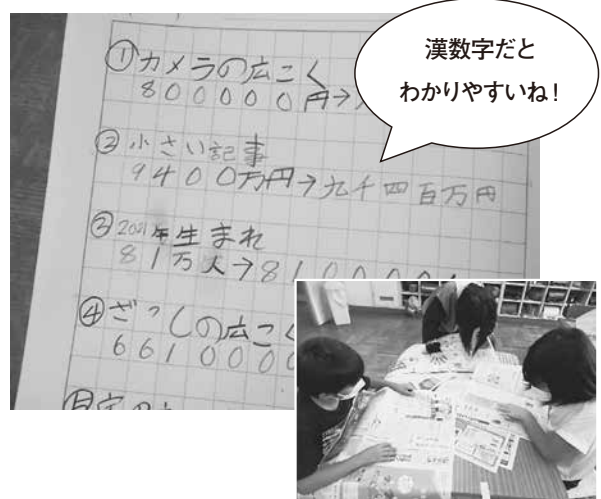 漢数字だと
わかりやすいね！
①カメラの広こく
800000円→
②小さい記事
9400万円→九千四百万円
③2021年生まれ
81万人→810000
④ざっしの広こく
661000